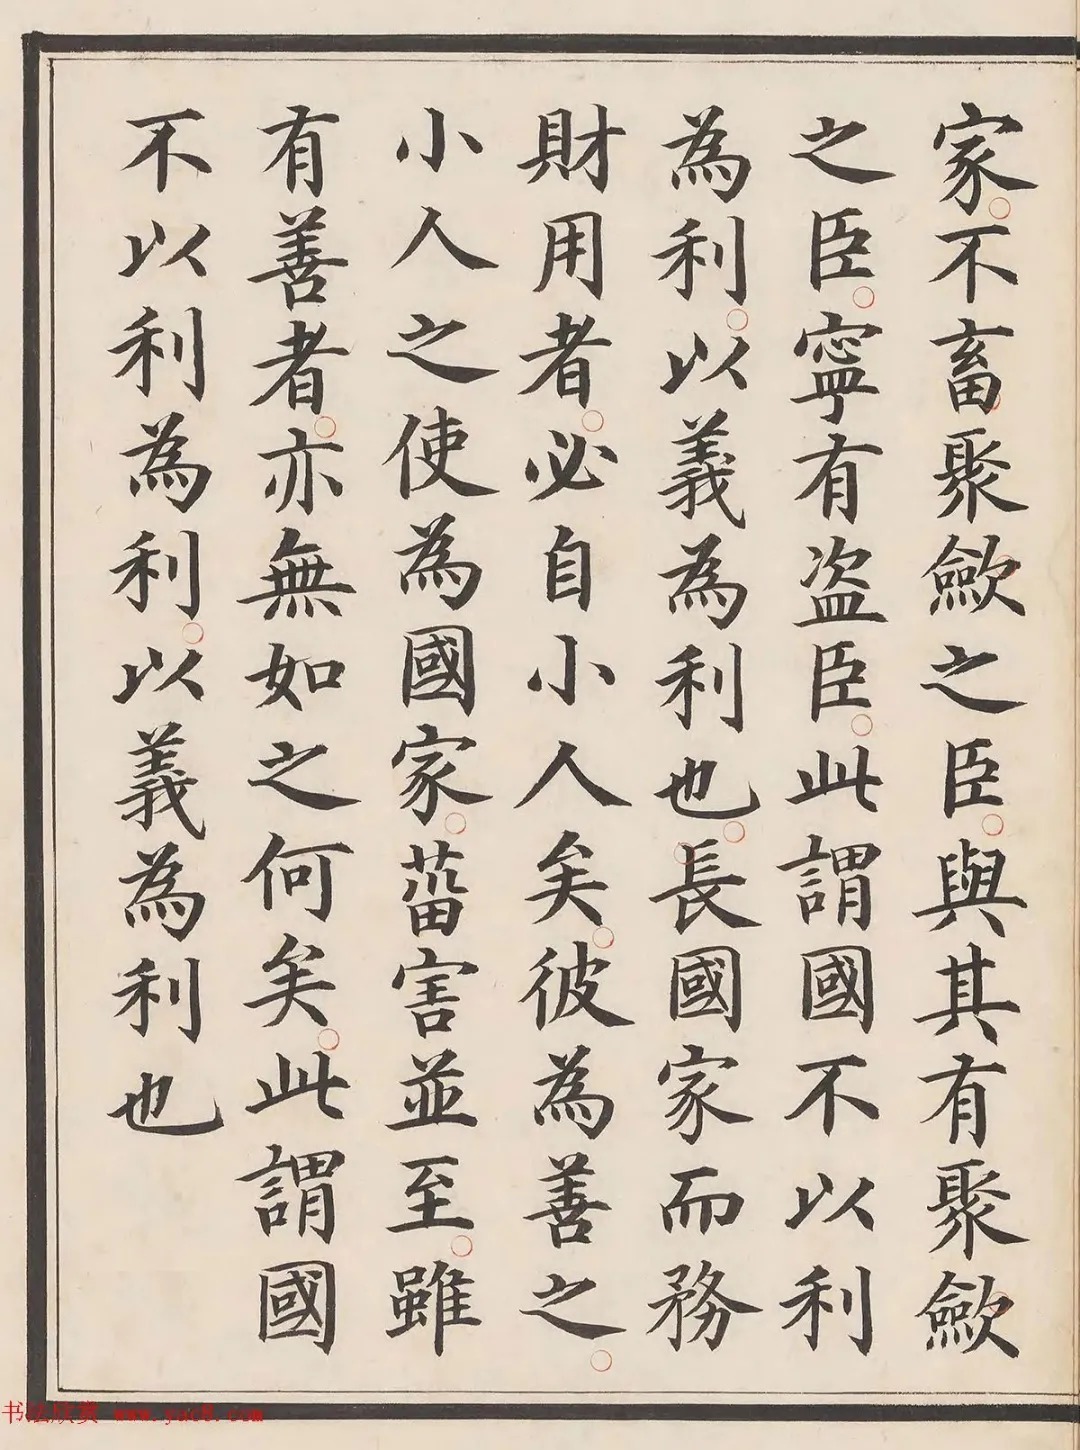 家不畜聚歛之臣與其有聚歛
之臣寧有盗臣此謂國不以利
為利以義為利也長國家而務
財用者必自小人矣彼為善之
小人之使為國家菑害並至雖
有善者亦無如之何矣此謂國
不以利為利以義為利也
书法欣赏 www.yac8.com